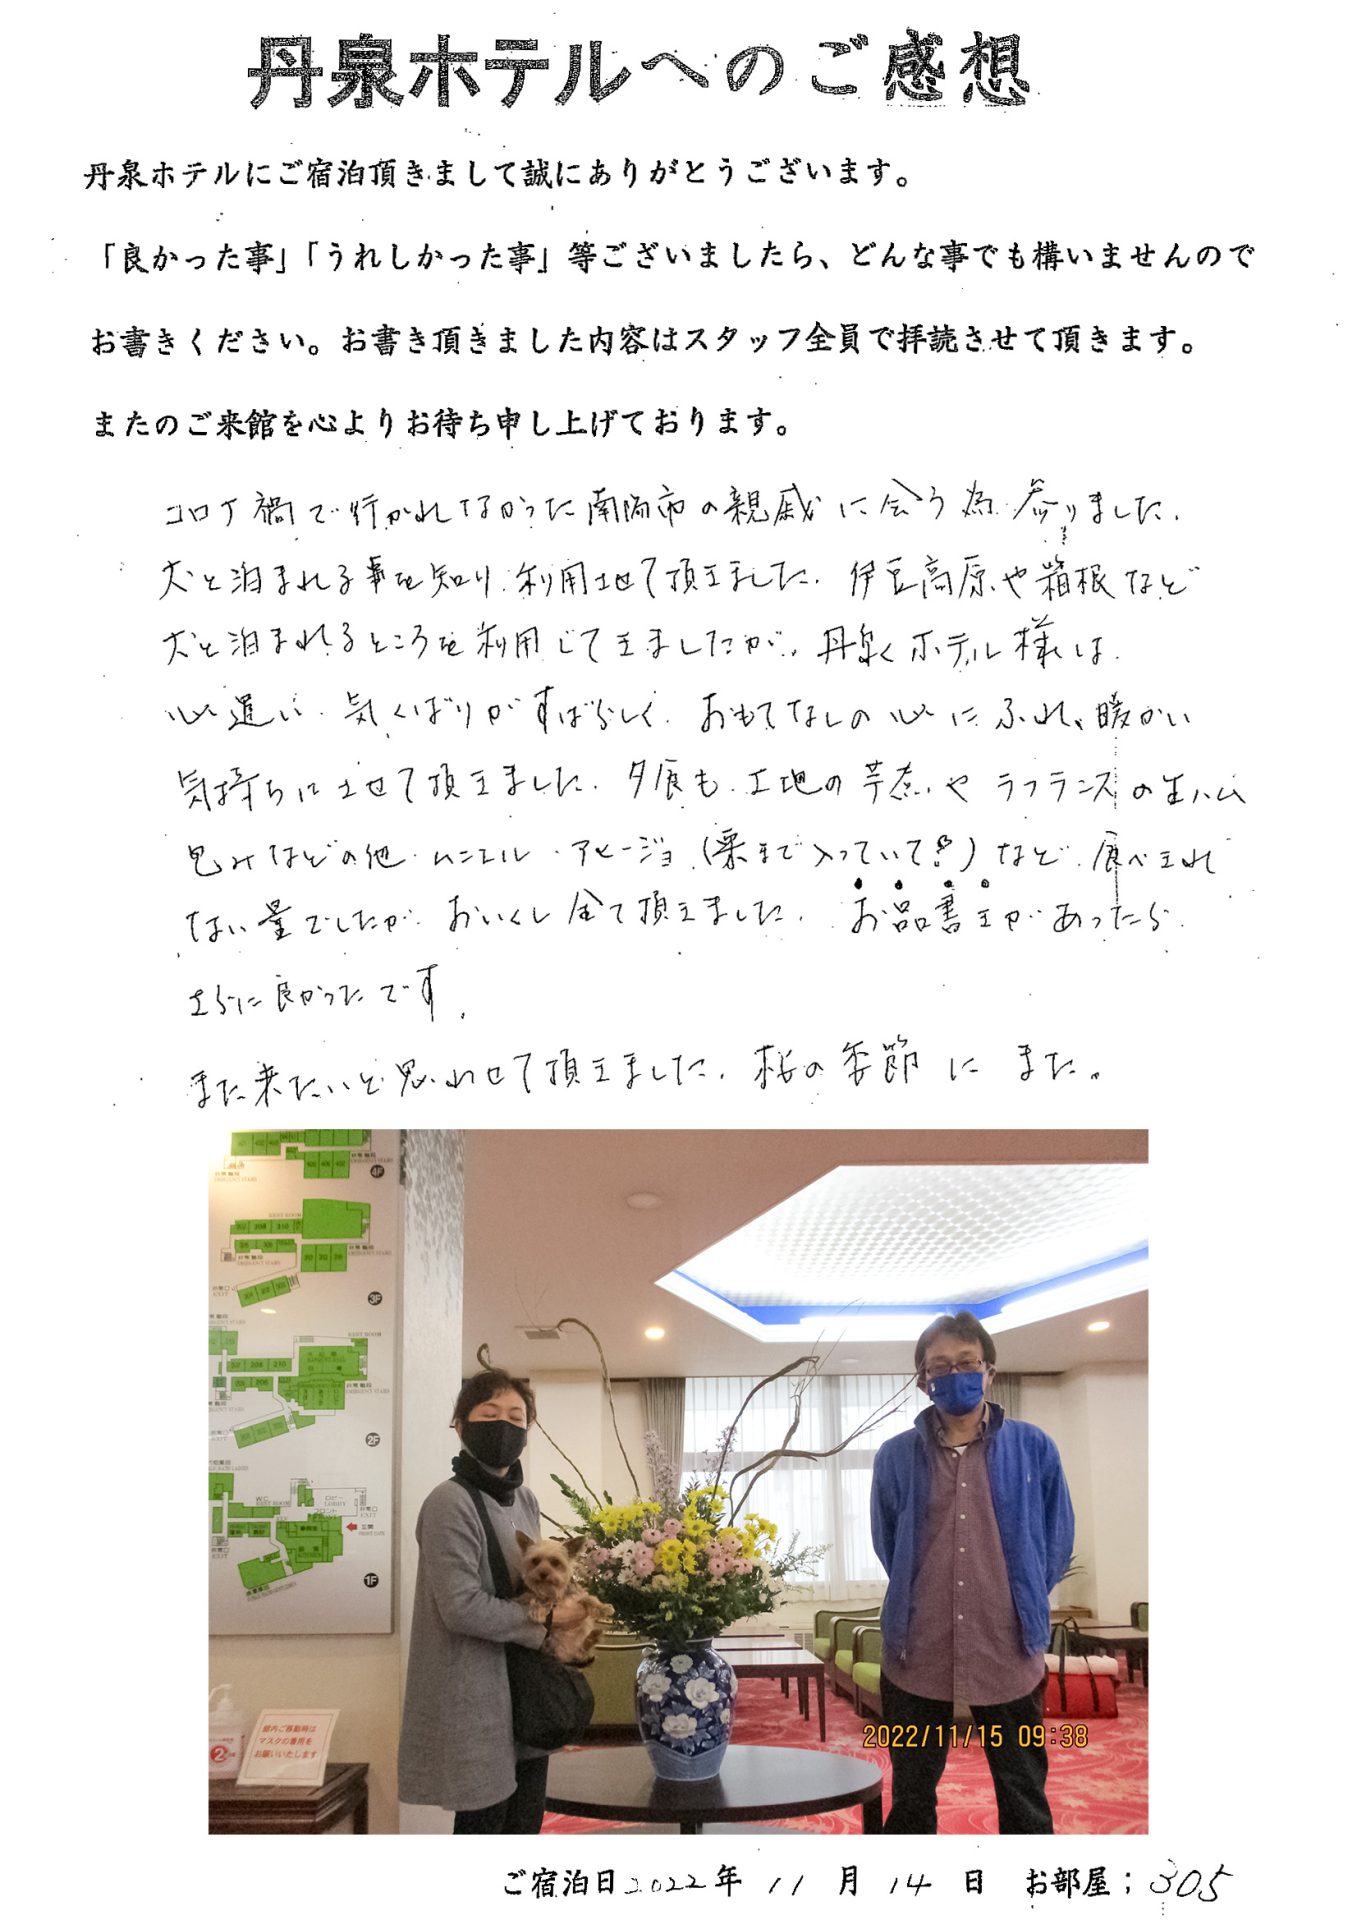 丹泉ホテルへのご感想
丹泉ホテルにご宿泊頂きまして誠にありがとうございます。
「良かった事」「うれしかった事」等ございましたら、どんな事でも構いませんので
お書きください。お書き頂きました内容はスタッフ全員で拝読させて頂きます。
またのご来館を心よりお待ち申し上げております。
コロナ禍で行かれなかった南陽市の親戚に会う為参りました。
犬と泊まれる事を知り、利用させて頂きました。伊豆高原や箱根など
犬と泊まれるところを利用してきましたが、丹泉ホテル様は
心遣い、気くばりがすばらしく、おもてなしの心にふれ、暖かい
気持ちにさせて頂きました。夕食も、土地の芋煮やラフランスの生ハム
包みなどの他、ムニエル、アヒージョ(栗まで入っていて!)など、食べきれ
ない量でしたが、おいくし全て頂きました。お品書きがあったら
さらに良かったです。
また来たいと思わせて頂きました。桜の季節に また。
4F
3F
2F
1F
非常階段
EMERGENCY STAIRS
REST ROOM
非常口
EXIT
W.C.
ロビー
LOBBY
フロント
玄関
館内ご移動時は
マスクの着用を
お願いいたします
2022/11/15 09:38
ご宿泊日 2022年 11 月 14 日 お部屋; 305